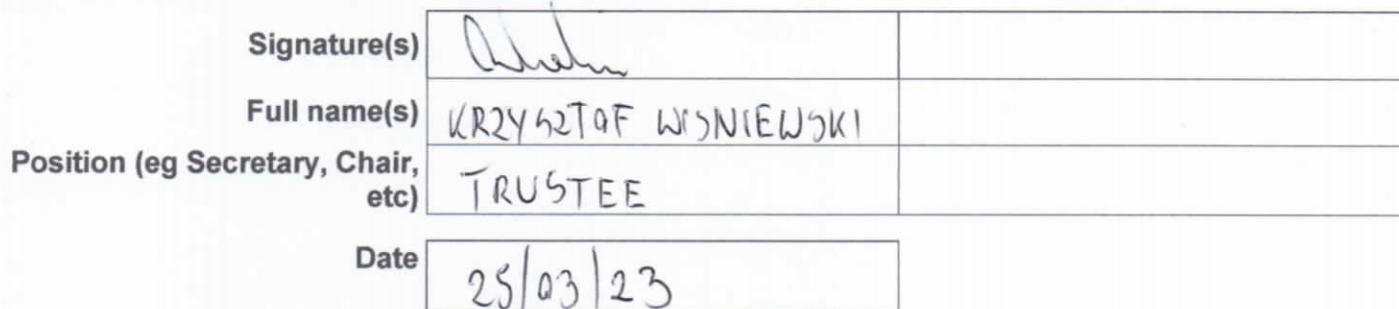 Signature(s)
Full name(s) KRZYSZTOF WISNIEWSKI
Position (eg Secretary, Chair, etc) TRUSTEE
Date 25/03/23